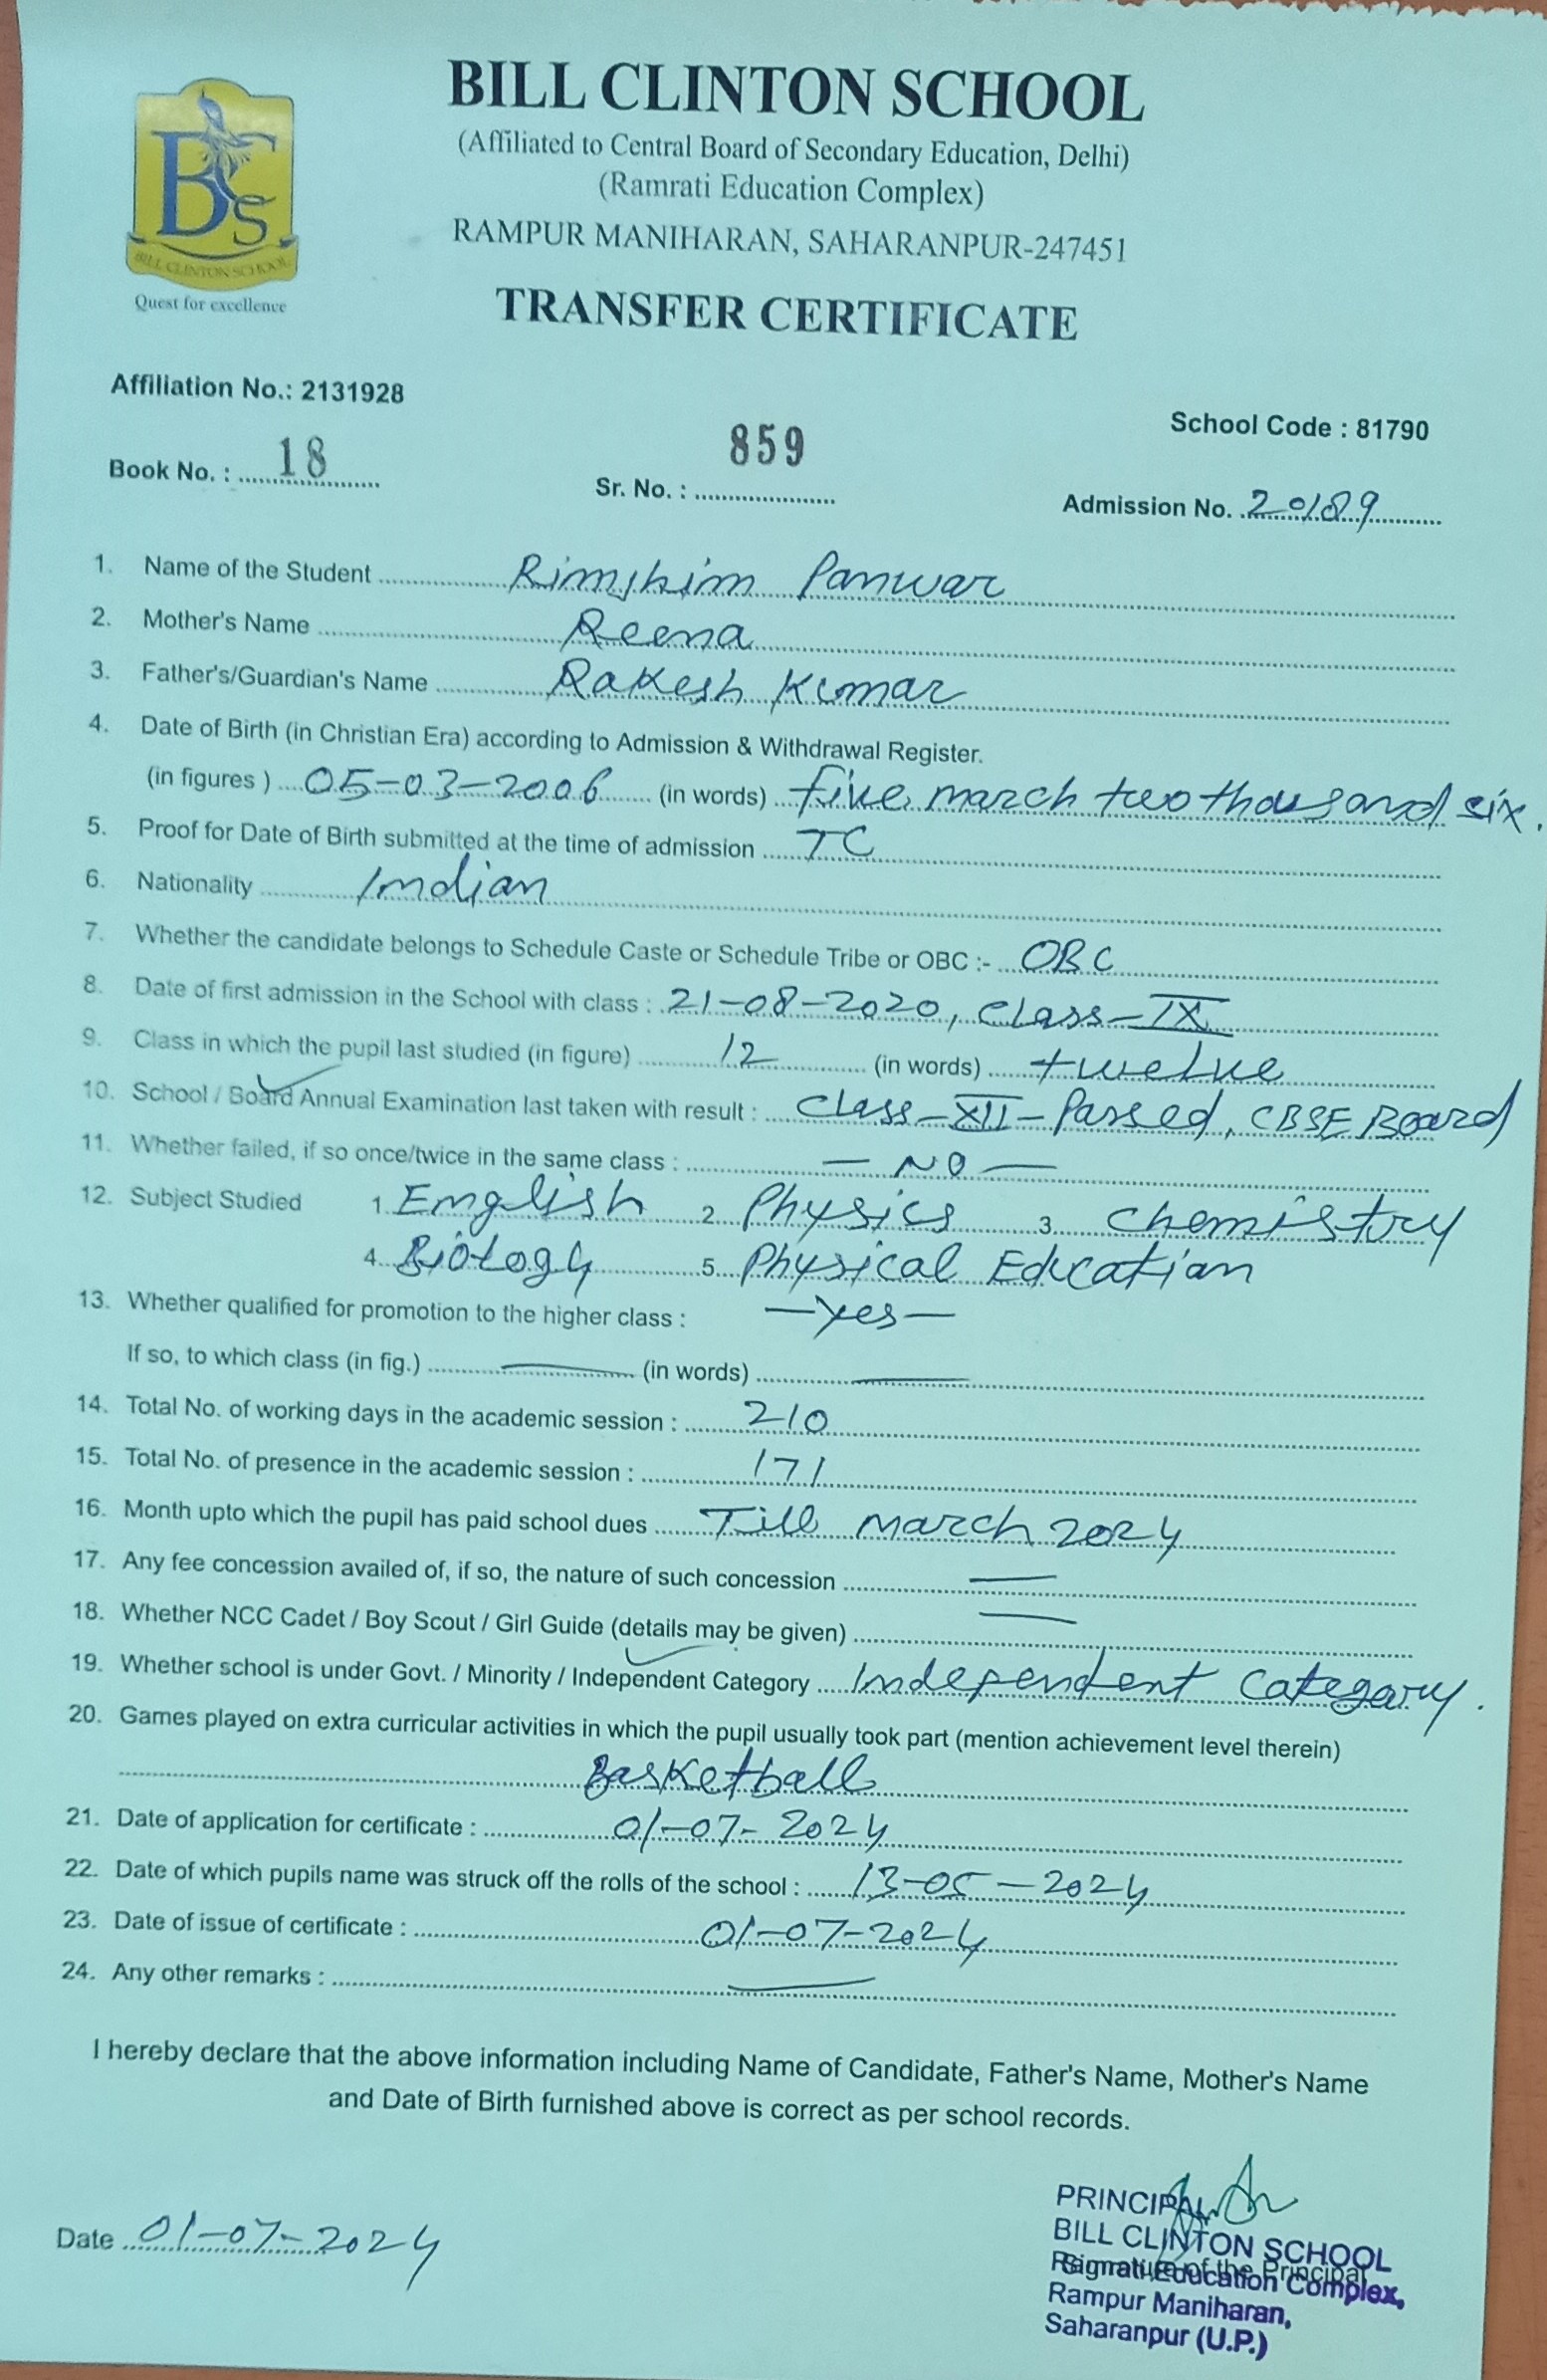 BILL CLINTON SCHOOL
(Affiliated to Central Board of Secondary Education, Delhi)
(Ramrati Education Complex)
RAMPUR MANIHARAN, SAHARANPUR-247451
BCS
BILL CLINTON SCHOOL
Quest for excellence
TRANSFER CERTIFICATE
Affiliation No.: 2131928
School Code : 81790
Book No. : 18 Sr. No. : 859 Admission No. 20189
1. Name of the Student Rimjhim Panwar
2. Mother's Name Reena
3. Father's/Guardian's Name Rakesh Kumar
4. Date of Birth (in Christian Era) according to Admission & Withdrawal Register.
(in figures ) 05-03-2006 (in words) five march two thousand six.
5. Proof for Date of Birth submitted at the time of admission TC
6. Nationality Indian
7. Whether the candidate belongs to Schedule Caste or Schedule Tribe or OBC :- OBC
8. Date of first admission in the School with class : 21-08-2020, Class-IX
9. Class in which the pupil last studied (in figure) 12 (in words) twelve
10. School / Board Annual Examination last taken with result : Class-XII-Passed, CBSE Board
11. Whether failed, if so once/twice in the same class : — NO —
12. Subject Studied 1. English 2. Physics 3. Chemistry
4. Biology 5. Physical Education
13. Whether qualified for promotion to the higher class : —Yes—
If so, to which class (in fig.) — (in words) —
14. Total No. of working days in the academic session : 210
15. Total No. of presence in the academic session : 171
16. Month upto which the pupil has paid school dues Till March 2024
17. Any fee concession availed of, if so, the nature of such concession —
18. Whether NCC Cadet / Boy Scout / Girl Guide (details may be given) —
19. Whether school is under Govt. / Minority / Independent Category Independent Category.
20. Games played on extra curricular activities in which the pupil usually took part (mention achievement level therein)
Basketball
21. Date of application for certificate : 01-07-2024
22. Date of which pupils name was struck off the rolls of the school : 13-05-2024
23. Date of issue of certificate : 01-07-2024
24. Any other remarks : —
I hereby declare that the above information including Name of Candidate, Father's Name, Mother's Name
and Date of Birth furnished above is correct as per school records.
Date 01-07-2024
PRINCIPAL
BILL CLINTON SCHOOL
Signature of the Principal
Ramrati Education Complex,
Rampur Maniharan,
Saharanpur (U.P.)